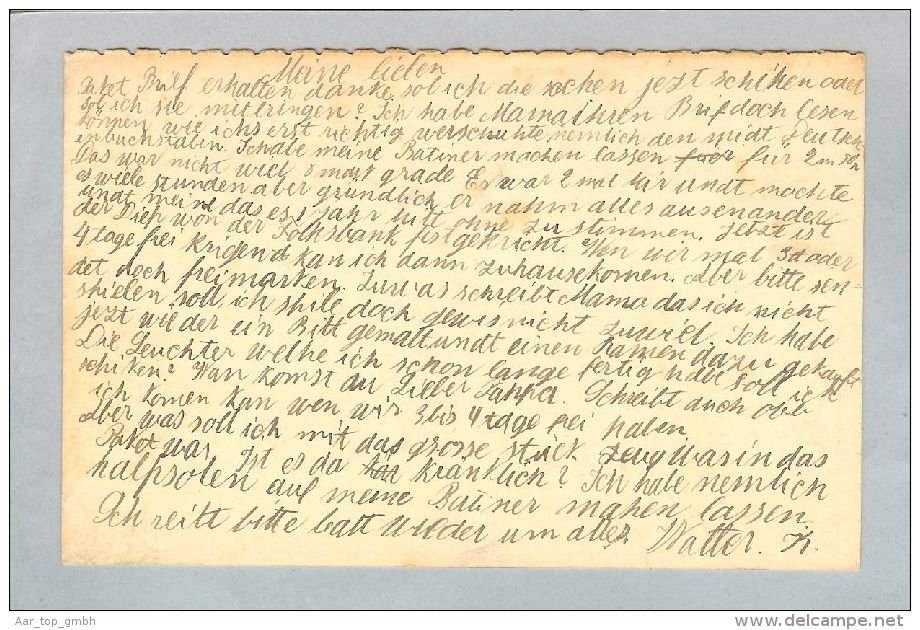 Meine lieben
Paket Brif erhalten danke sol ich die sachen jezt schiken oder
sol ich sie mitbringen? Ich habe Mama ihren Brif doch lesen
können wie ichs erst richtig verschuhte nemlich den midt Leutsch
inbuchstabin. Ich abe meine Batiner machen lassen für 2 m 50
Das war nicht viel 8 mark grade Er war 2 mal hir undt mochte
es wiele stunden aber gründlich er nahm alles ausenander
undt meine das es 1 jahr hilt ohne zu stimmen. Jetzt ist
der Dieb von der Folksbank festgekricht. Wen wir mal 3 d oder
4 tage frei krigend kan ich dann zuhausekomen. Aber bitte sen-
det noch freimarken. Zuras schreibt Mama das ich nicht
spielen soll ich spile doch gewis nicht zuwiel. Ich habe
jezt wieder ein Bilt gemalt undt einen Ramen dazu gekauft
Die Leuchter welhe ich schon lange fertig habe soll ich
schiken? Wan komst du Lieber Pappa. Schreibt auch ob
ich komen kan wen wir 3 bis 4 tage frei haben
Aber was soll ich mit das grosse stück Zeug was in das
Paket war. Ist es da kränklich? Ich habe nemlich
halpsolen auf meine Batiner mahen lassen
Schreibt bitte batt wieder um alles. Walter. K.
Aar_top_gmbh
www.delcampe.net